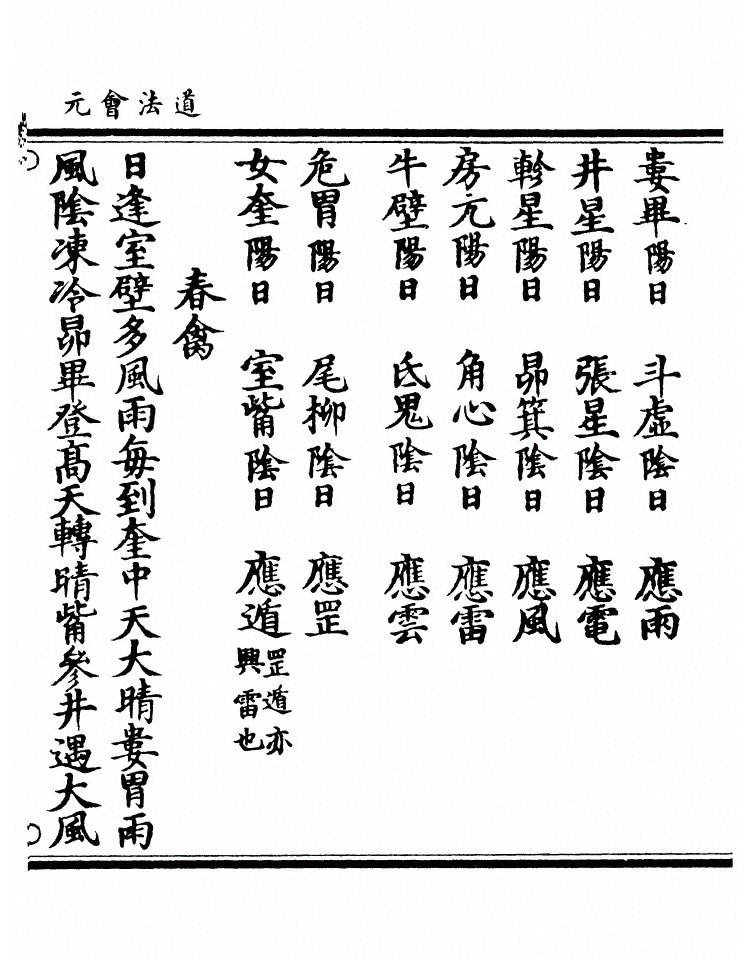 道法會元
婁畢陽日 斗虛陰日 應雨
井星陽日 張星陰日 應電
軫星陽日 昴箕陰日 應風
房亢陽日 角心陰日 應雷
牛壁陽日 氐鬼陰日 應雲
危胃陽日 尾柳陰日 應罡
女奎陽日 室觜陰日 應遁 罡遁亦
興雷也
春禽
日逢室壁多風雨每到奎中天大晴婁胃雨
風陰凍冷昴畢登高天轉晴觜參井遇大風